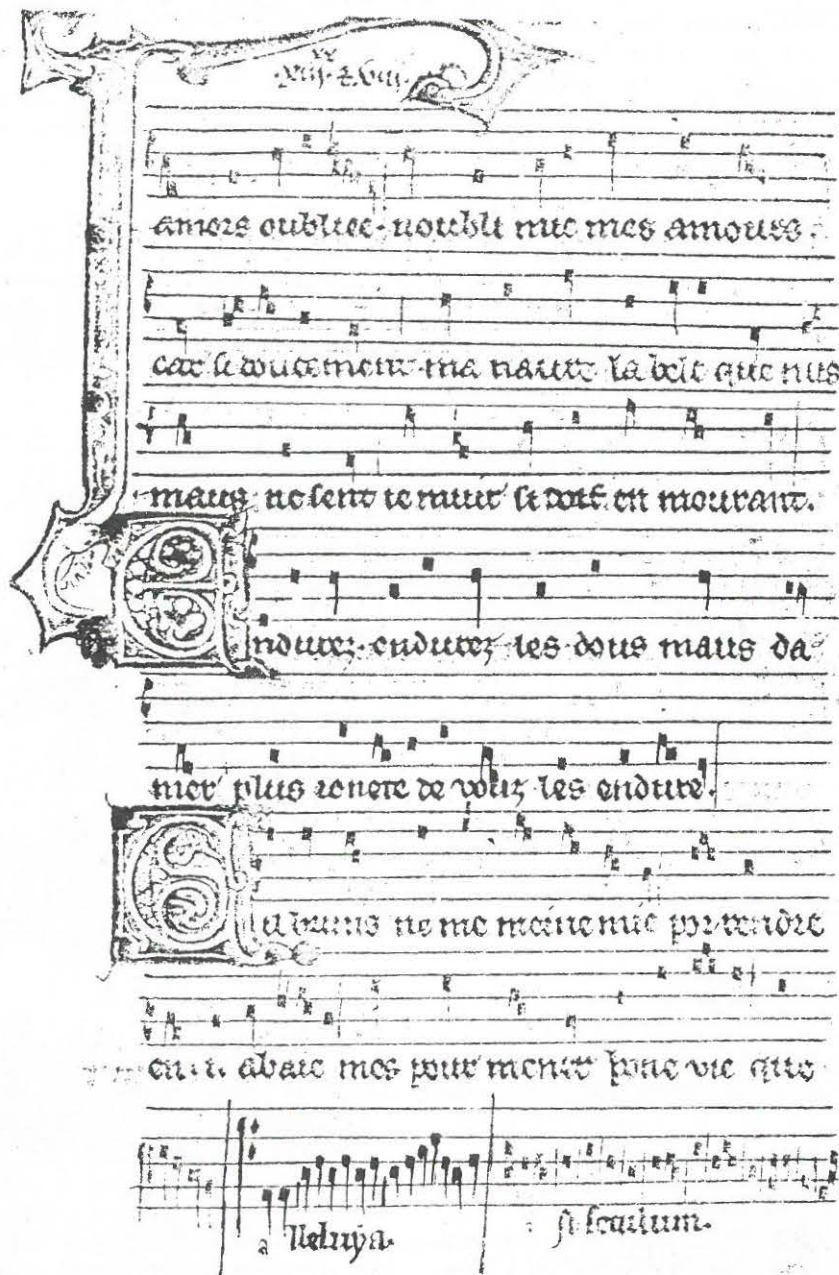 amors oubliee. noubli mie mes amours.
car si doucement ma navre la bele que nus
maus ne sent ie muir si doit en mourant.
Endurez. endurez les dous maus da
mer plus ionete de vouz les endure.
ne me meine mie por rendre
en. i. abaie mes pour mener bone vie que
alleluya.